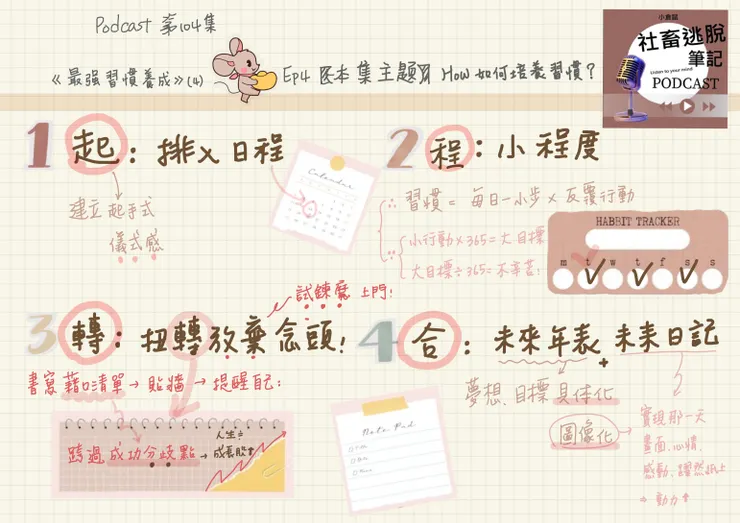 Podcast 第104集
《最強習慣養成》(4)
Ep4 本集主題 How 如何培養習慣？
小倉鼠
社畜逃脫
筆記
Listen to your mind
PODCAST
1 起：排x日程
建立起手式
儀式感
Calendar
2 程：小程度
∵ 習慣 = 每日一小步 x 反覆行動
∴ 小行動x365=大目標
大目標÷365=不辛苦！
HABBIT TRACKER
m t w t f s s
試鍊魔上門！
3 轉：扭轉放棄念頭！
書寫藉口清單→貼牆→提醒自己：
跨過成功分歧點
人生
→成長股
4 合：未來年表+未來日記
夢想、目標具體化
圖像化
實現那一天
畫面、心情、
感動、躍然紙上
⇒ 動力↑
Note Pad